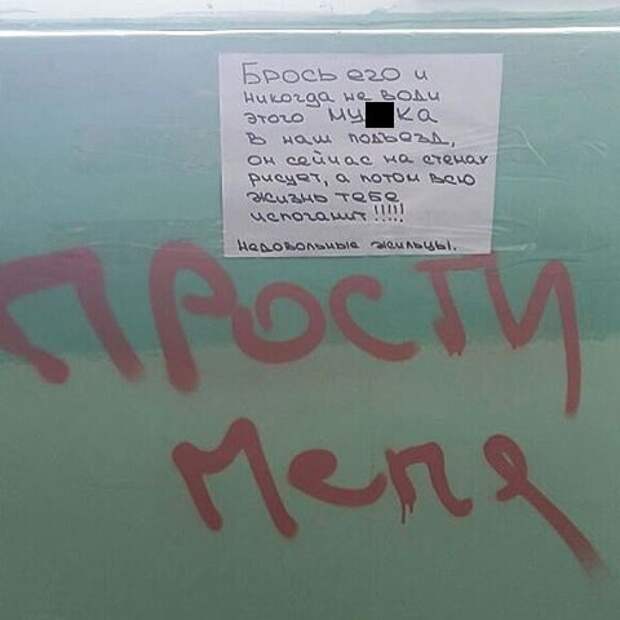 Брось его и
никогда не води
этого му██ка
в наш подъезд,
он сейчас на стенах
рисует, а потом всю
жизнь тебе
испоганит!!!!!
Недовольные жильцы.
ПРОСТИ
Меня